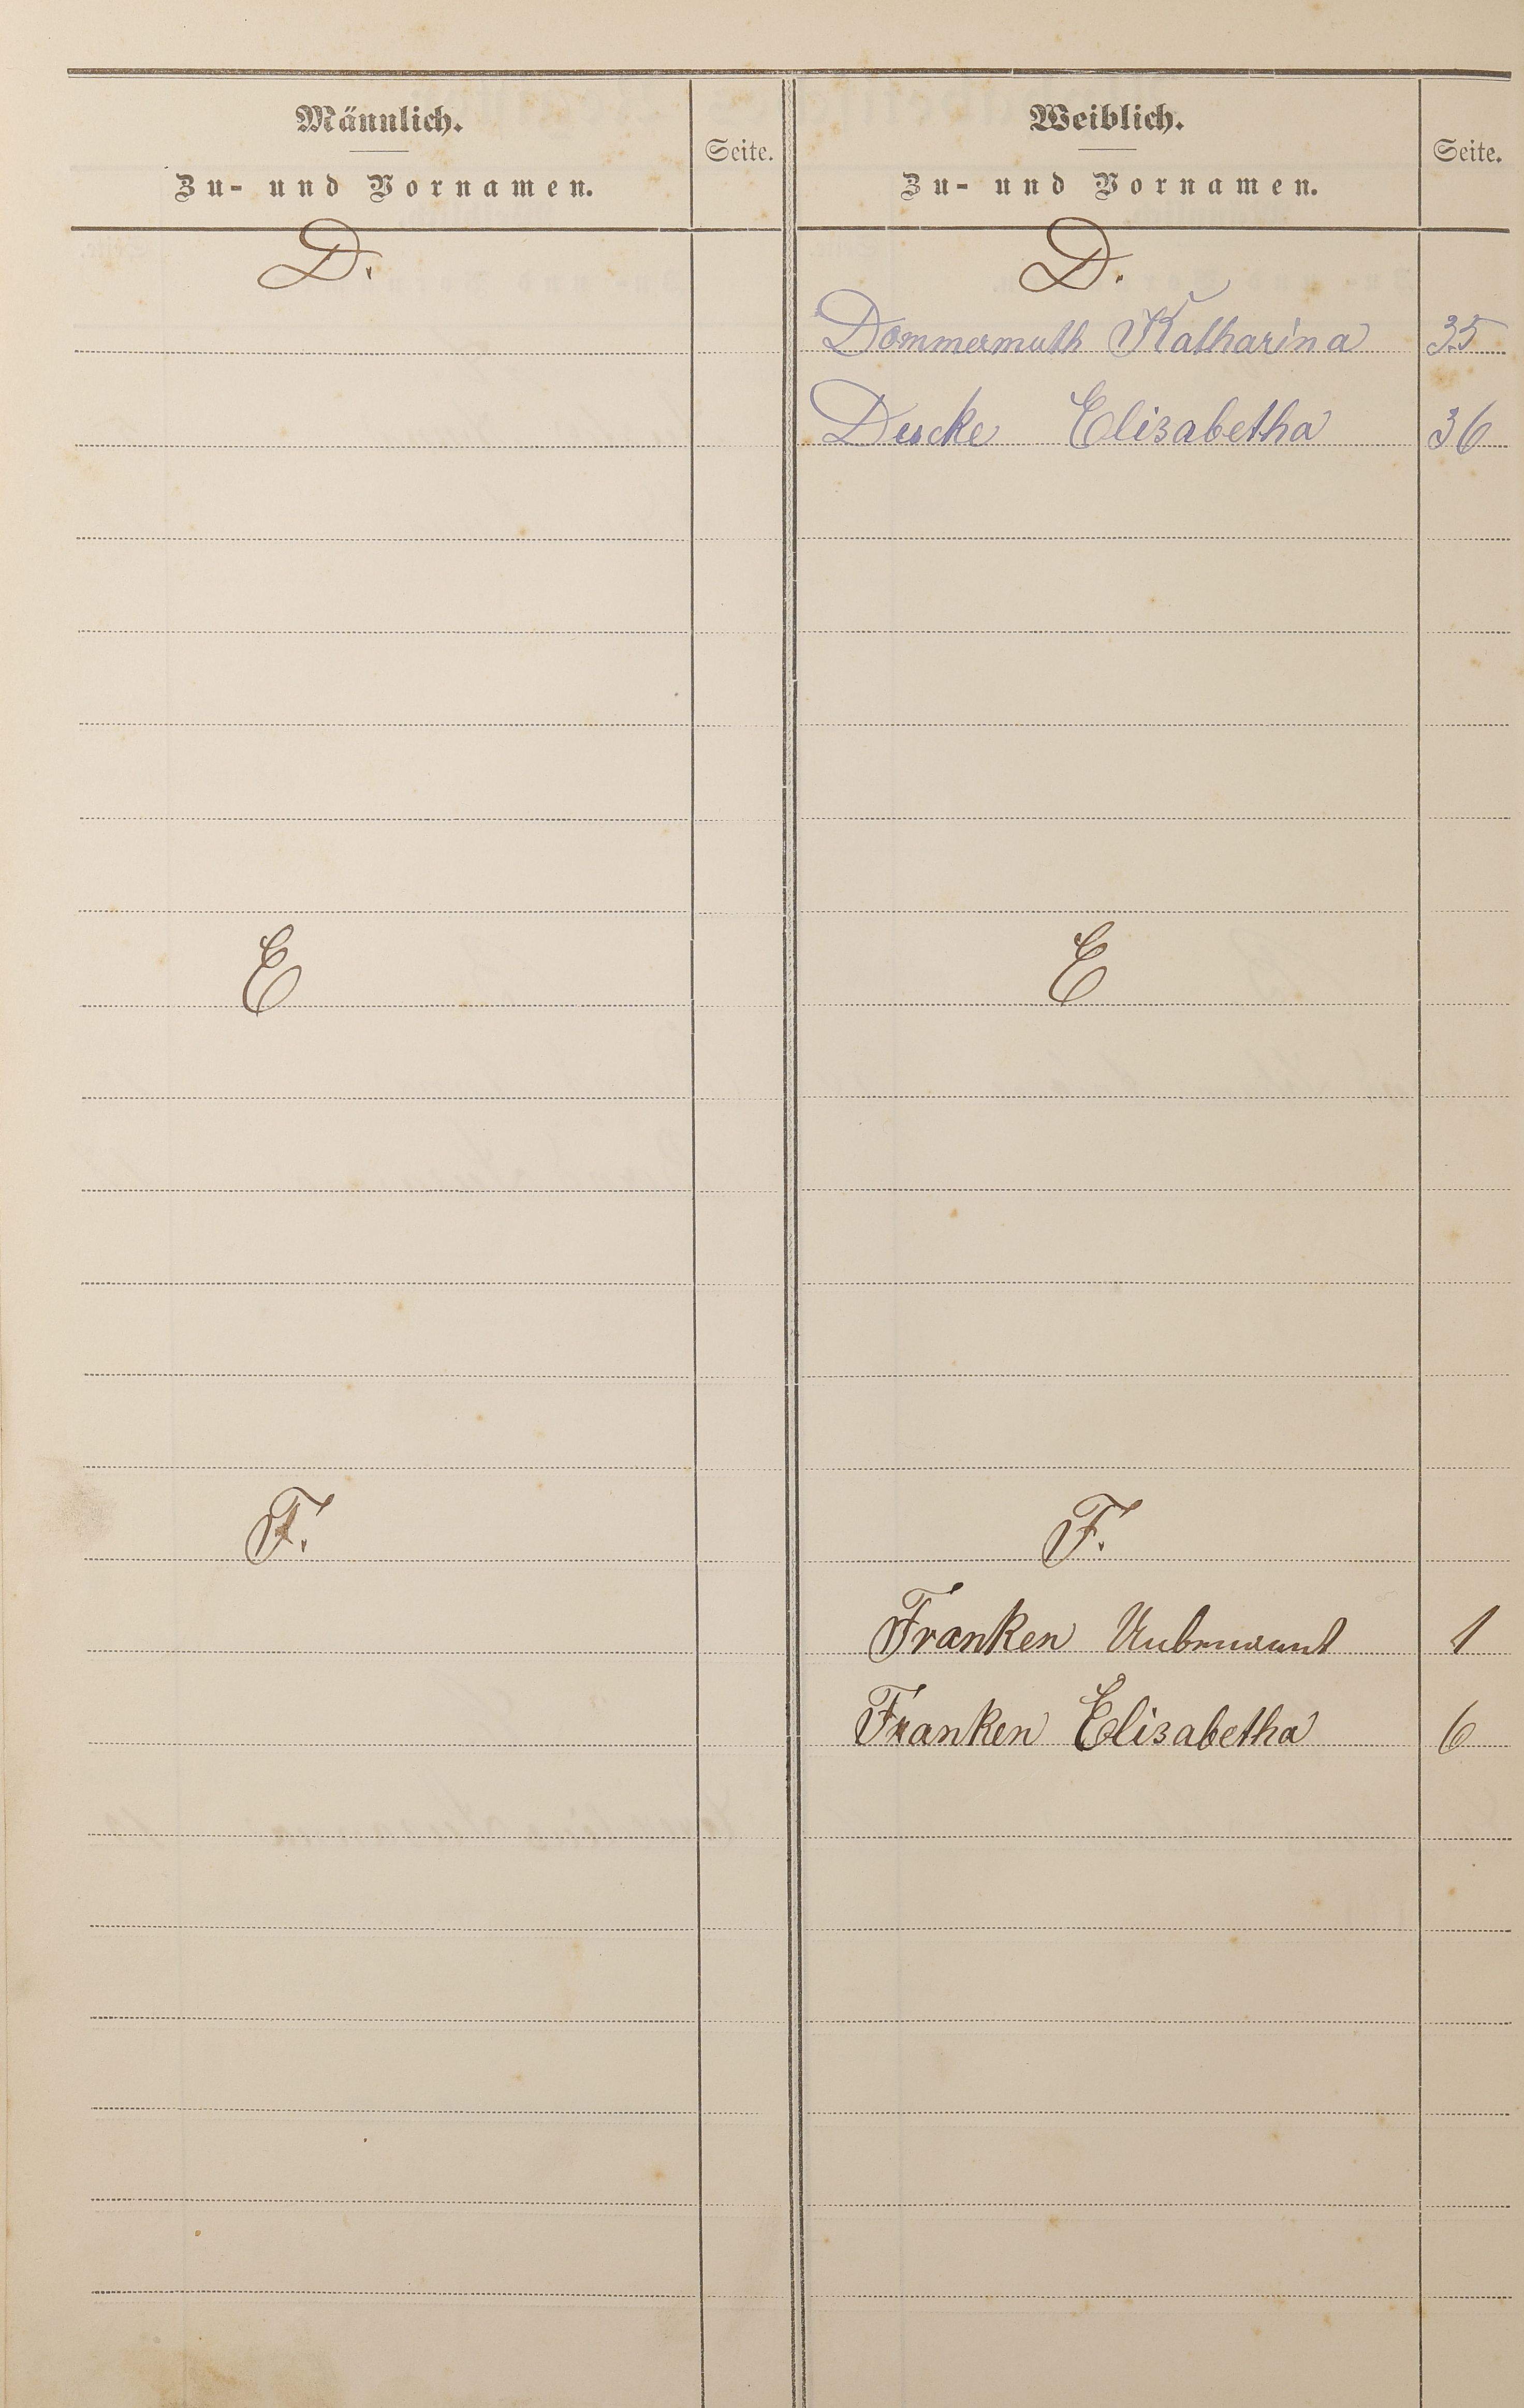 Männlich.
Zu- und Vornamen.
Seite.
Weiblich.
Zu- und Vornamen.
Seite.
D.
D.
Dommermuth Katharina 35
Elisabetha 36
E
E
F.
F.
Franken Unbenannt 1
Franken Elisabetha 6